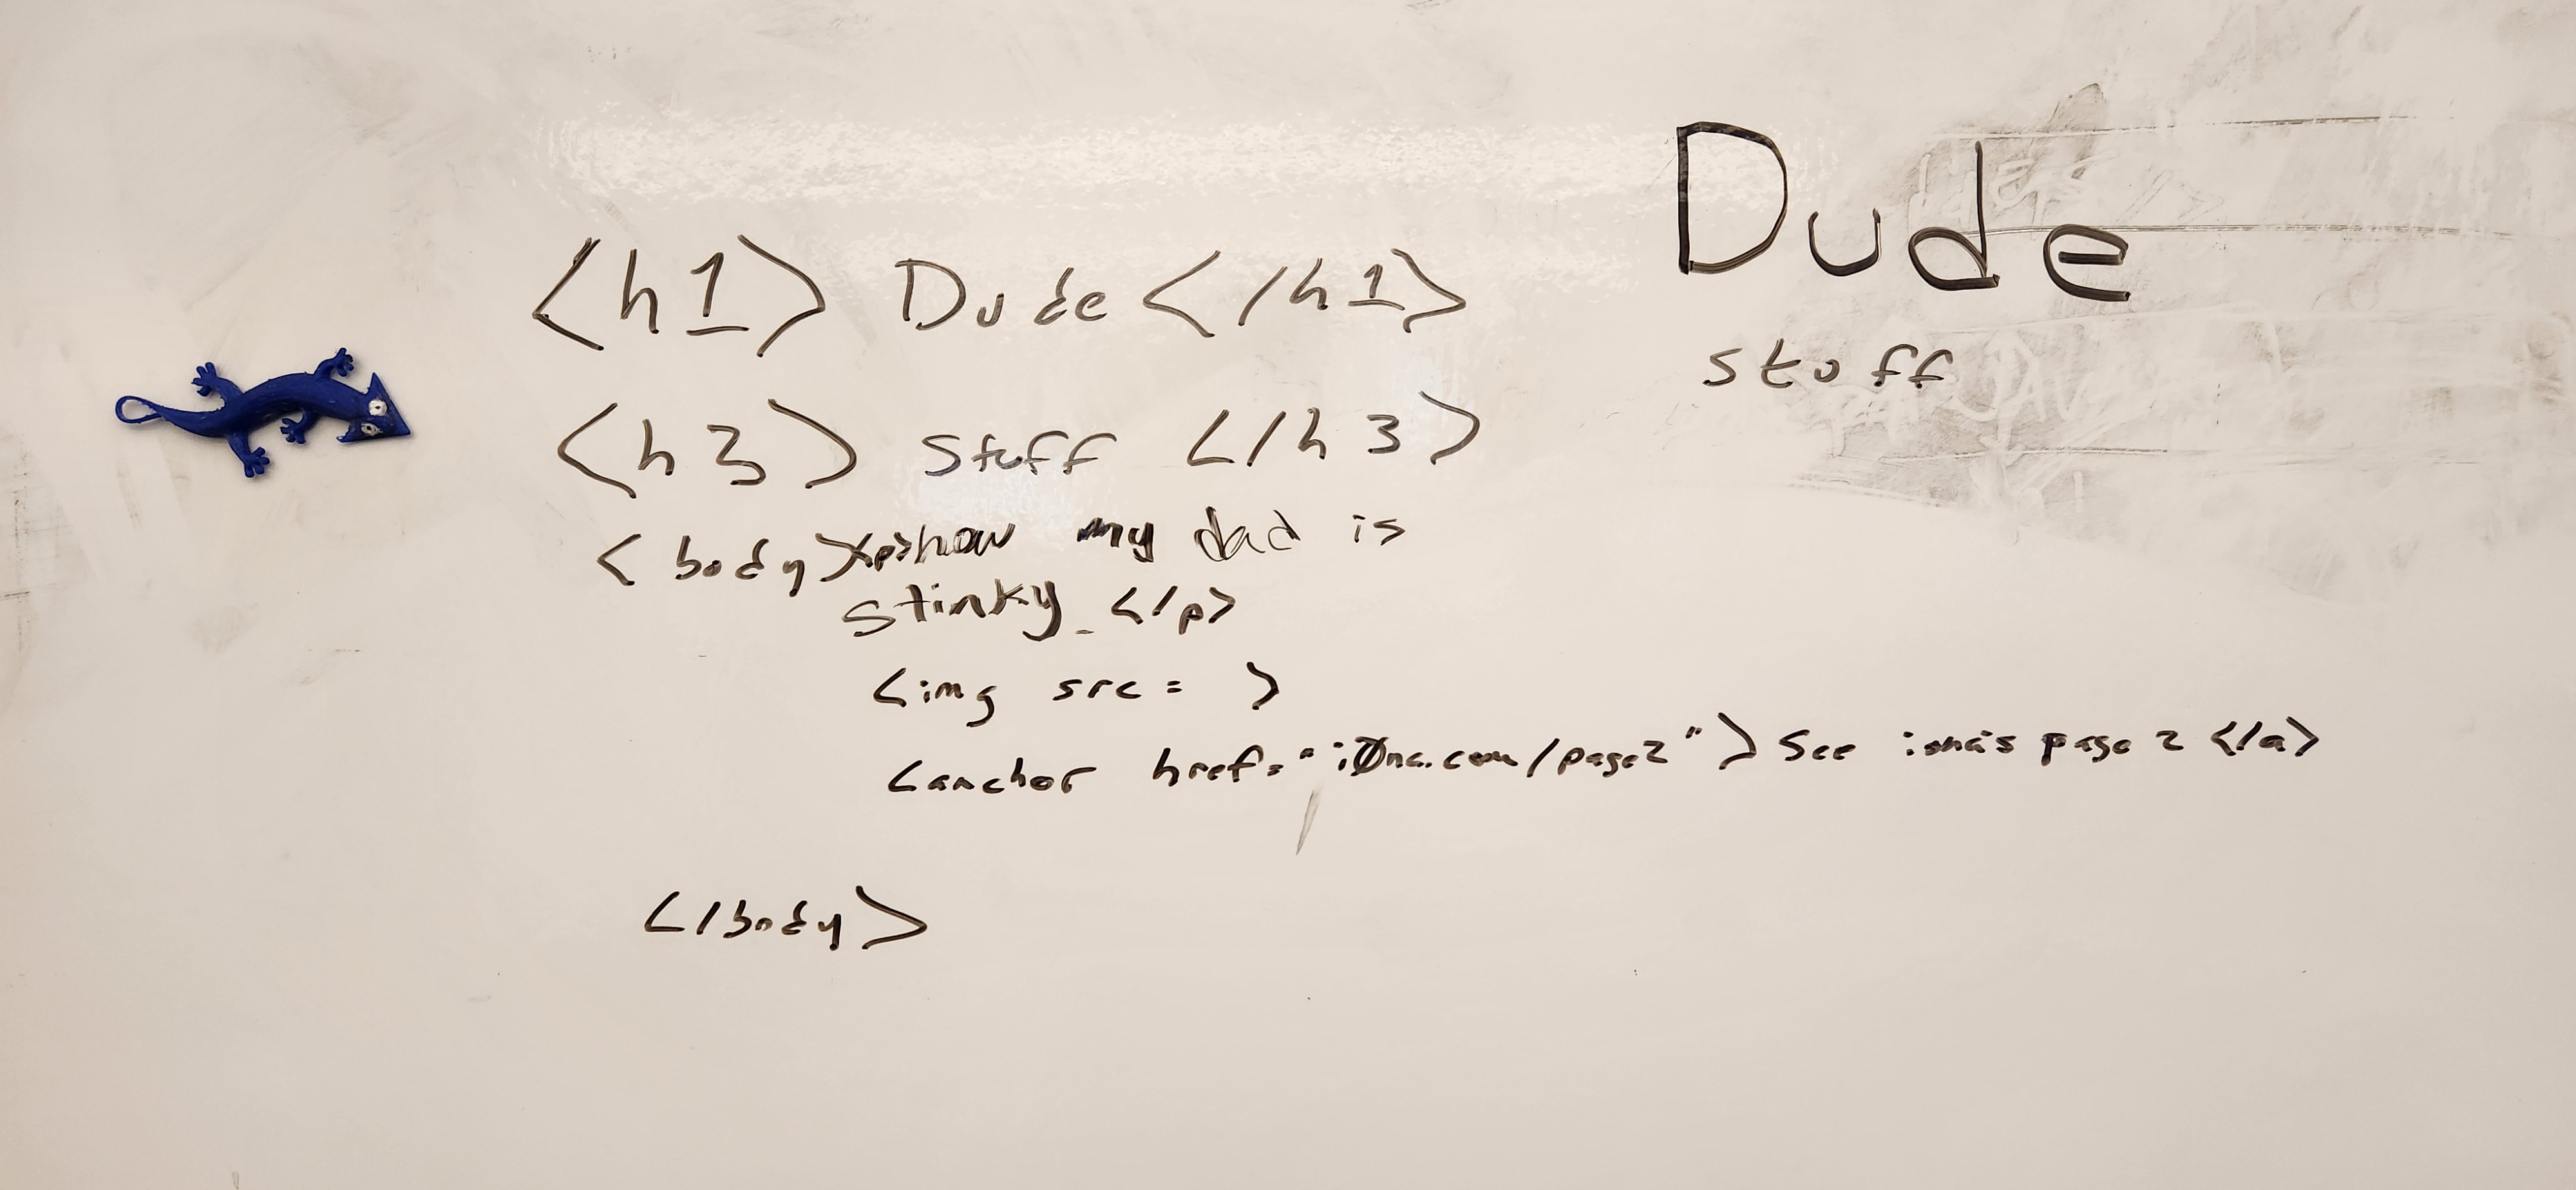 <h1> Dude </h1>
<h3> Stuff </h3>
<body><p>how my dad is
stinky </p>
<img src= >
<anchor href="iØna.com/page2"> See iona's page 2 </a>
</body>
Dude
stuff